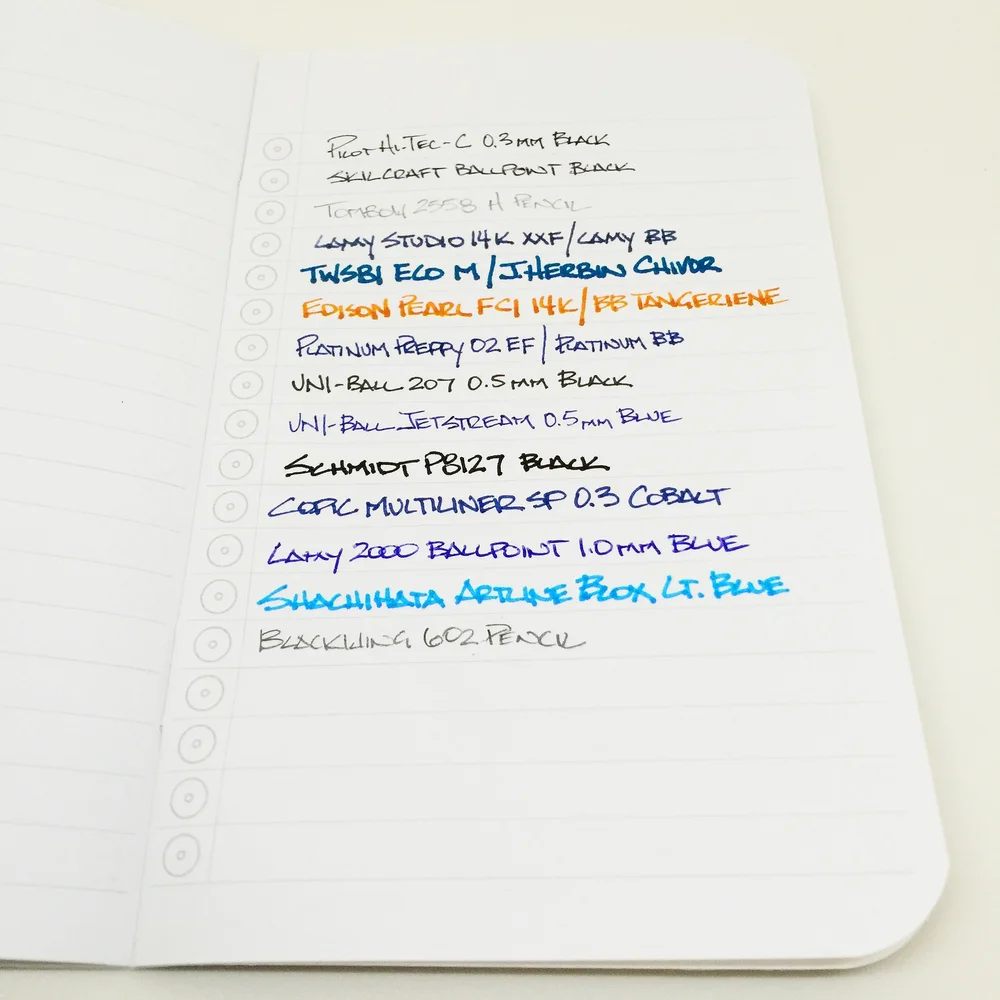 PILOT HI-TEC-C 0.3MM BLACK
SKILCRAFT BALLPOINT BLACK
TOMBOW 2558 H PENCIL
LAMY STUDIO 14K XXF/LAMY BB
TWSBI ECO M/J.HERBIN CHIVOR
EDISON PEARL FCI 14K/BB TANGERIENE
PLATINUM PREPPY 02 EF/PLATINUM BB
UNI-BALL 207 0.5MM BLACK
UNI-BALL JETSTREAM 0.5MM BLUE
SCHMIDT P8127 BLACK
COPIC MULTILINER SP 0.3 COBALT
LAMY 2000 BALLPOINT 1.0MM BLUE
SHACHIHATA ARTLINE BLOX LT. BLUE
BLACKWING 602 PENCIL